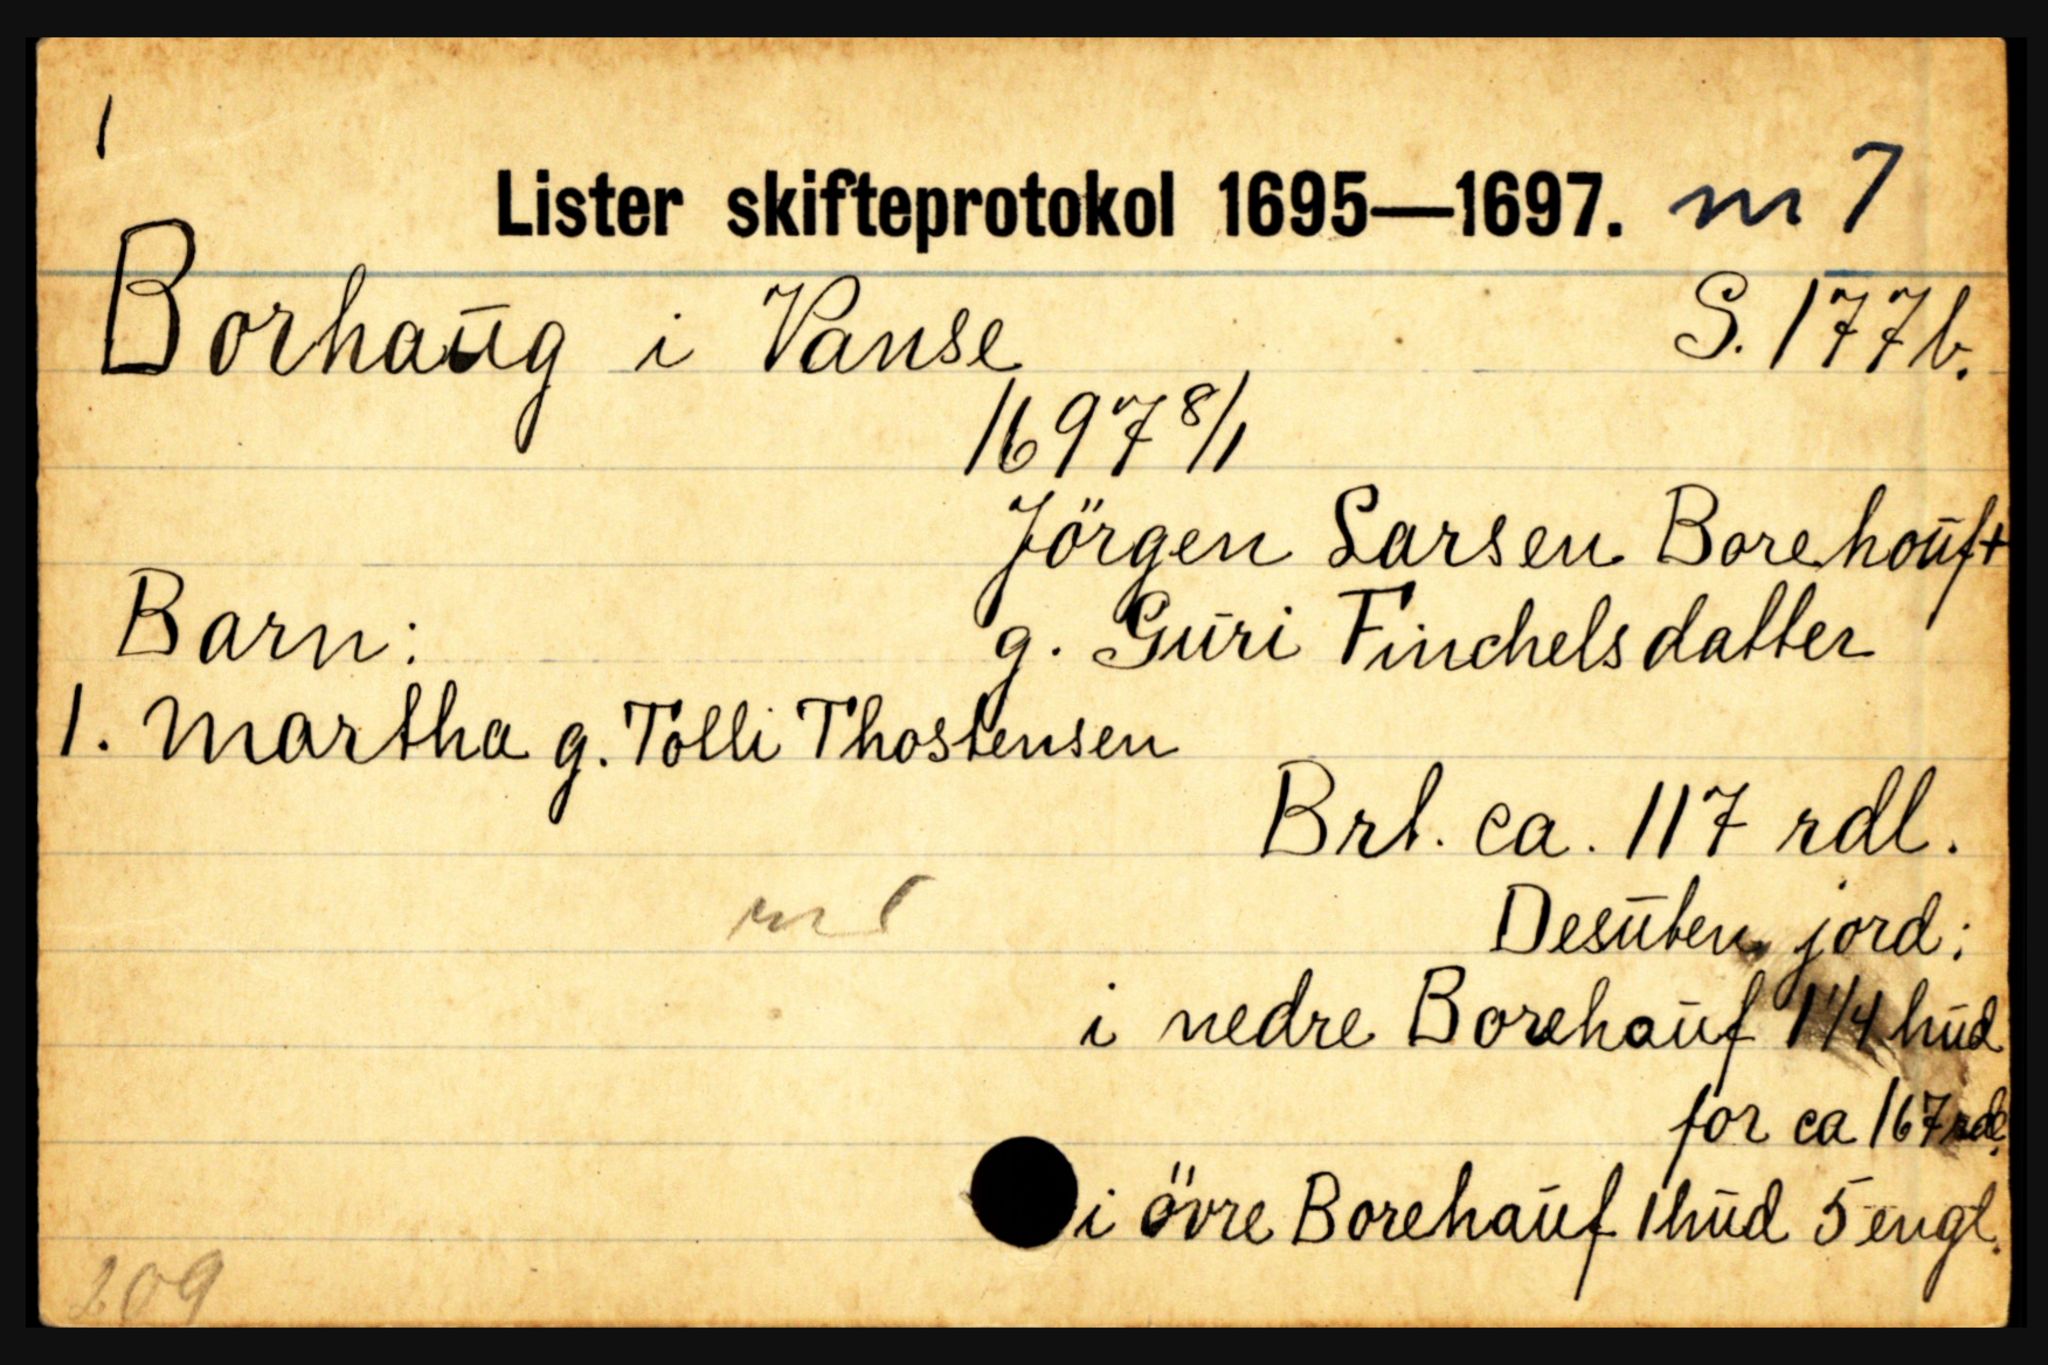 1
Lister skifteprotokol 1695—1697. m 7
Borhaūg i Vanse S. 177b.
1697 8/1
Jörgen Larsen Borehoūf +
Barn: g. Gūri Finchelsdatter
1. Martha g. Tolli Thostensen
Brt. ca. 117 rdl.
Desūten jord:
i nedre Borehaūf 1 1/4 hūd
for ca 167 rdl.
i övre Borehaūf 1 hūd 5 engl.
209